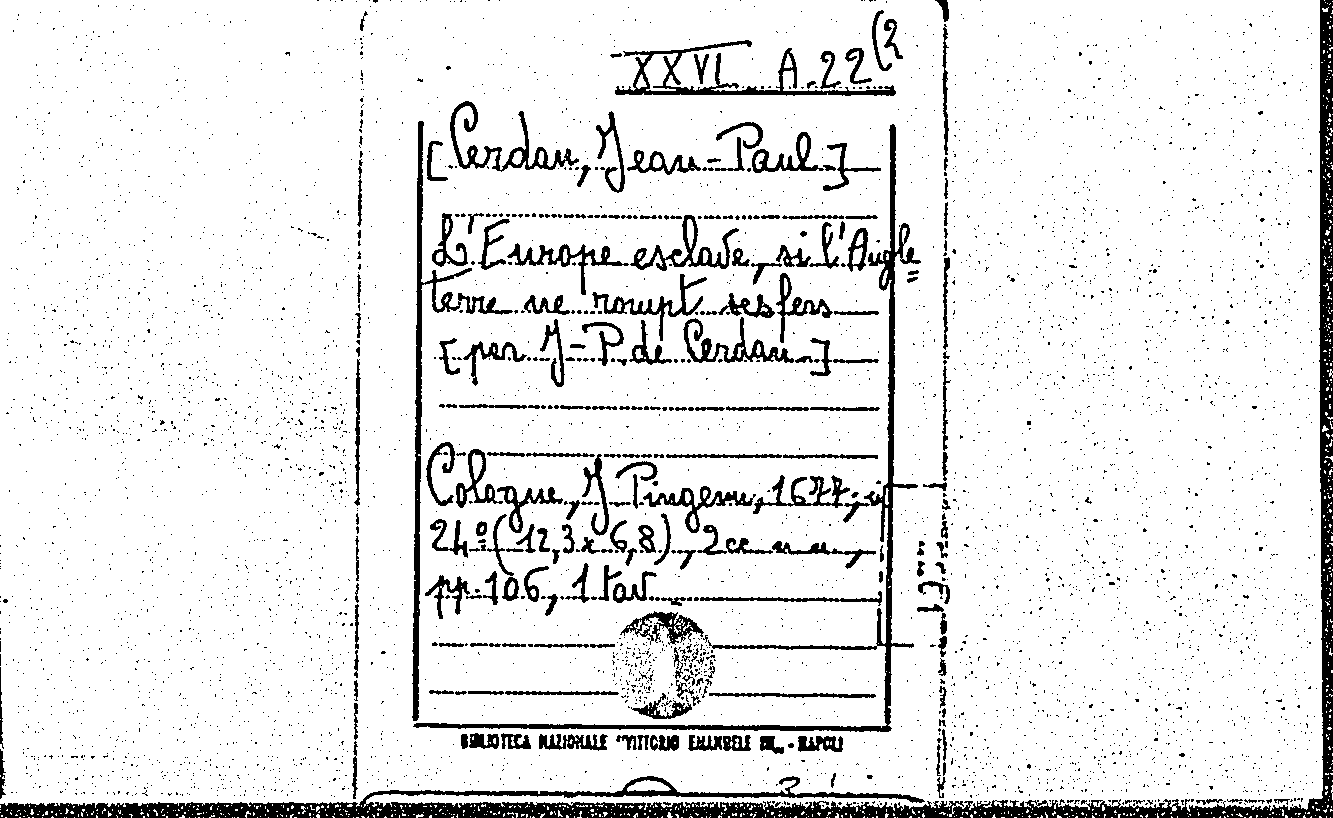 XXVI A.22(2
[Cerdan, Jean-Paul]
L'Europe esclave, si l'Angle=
terre ne rompt ses fers
[par J-P. de Cerdan]
Cologne, J Pingenu, 1677; in
24º (12,3x6,8), 2cc n n.,
pp.106, 1 tav
BIBLIOTECA NAZIONALE "VITTORIO EMANUELE III„ - NAPOLI